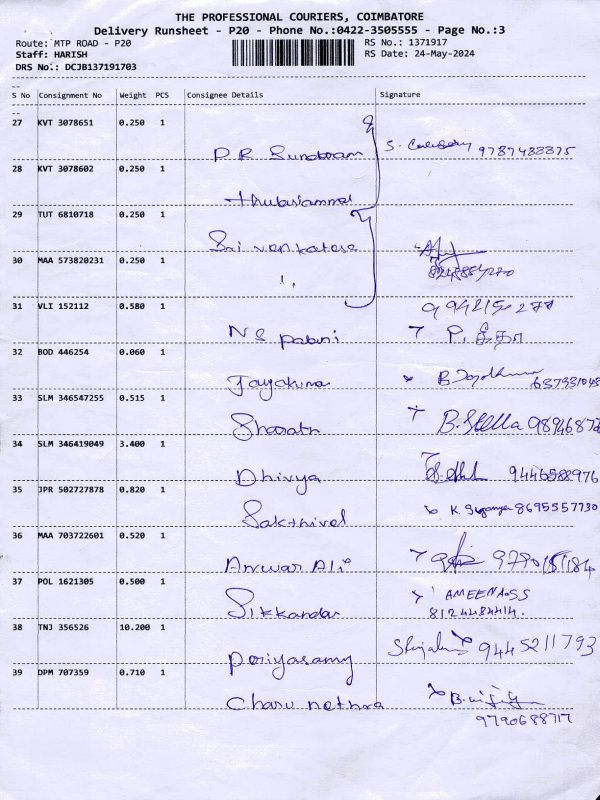 THE PROFESSIONAL COURIERS, COIMBATORE
Delivery Runsheet - P20 - Phone No.:0422-3505555 - Page No.:3
Route: MTP ROAD - P20 RS No.: 1371917
Staff: HARISH RS Date: 24-May-2024
DRS No.: DCJB137191703
S No Consignment No Weight PCS Consignee Details Signature
27 KVT 3078651 0.250 1
P R Sundaram 9787488375
28 KVT 3078602 0.250 1
thulasiammal
29 TUT 6810718 0.250 1
Sri venkatesa
30 MAA 573820231 0.250 1
31 VLI 152112 0.580 1
N S palani P. கீதா
32 BOD 446254 0.060 1
Jayakumar
33 SLM 346547255 0.515 1
Sharath B. Stella
34 SLM 346419049 3.400 1
Dhivya 9446588976
35 JPR 502727878 0.820 1
Sakthivel K. Suganya 8695557730
36 MAA 703722601 0.520 1
Anwar Ali
37 POL 1621305 0.500 1
Sikkandar AMEENA.SS
8124484414.
38 TNJ 356526 10.200 1
periyasamy 9445211793
39 DPM 707359 0.710 1
Charu nethra
9790688717